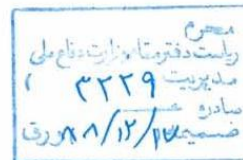 محرم
ریاست دفتر مقام وزارت دفاع ملی
مدیریت ۳۲۲۹
صادره
ضمیمه ورق